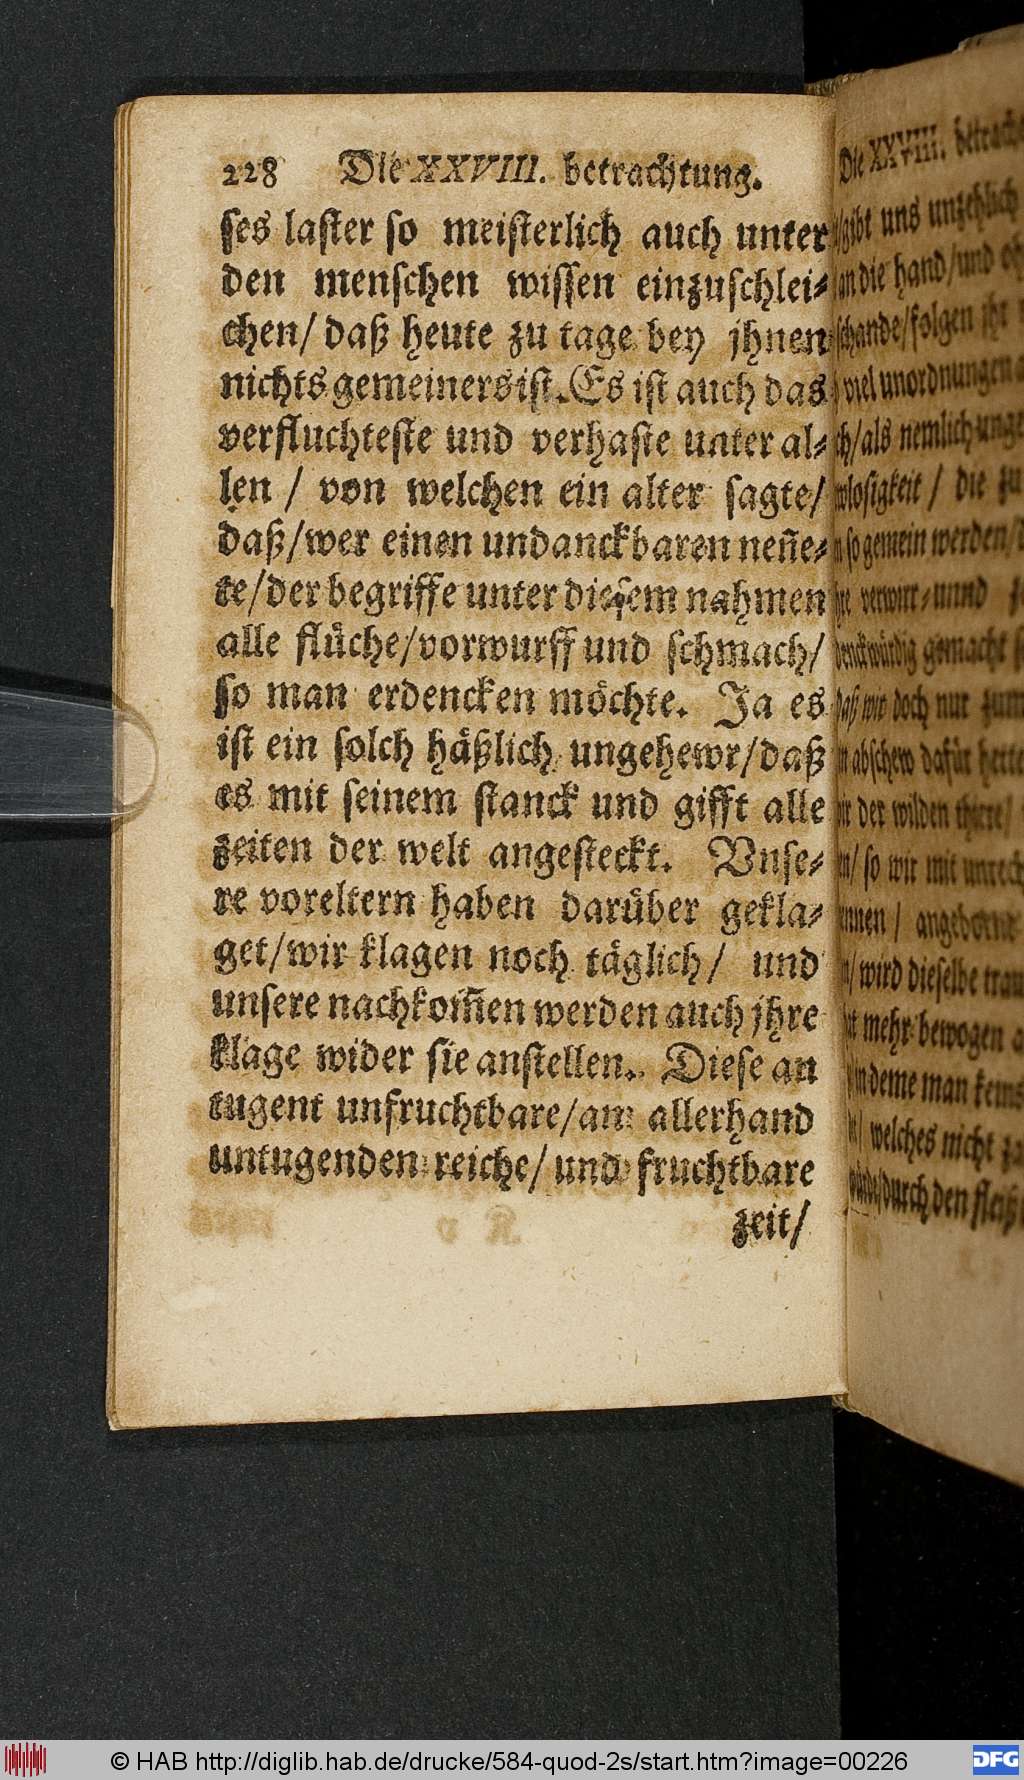 228 Die XXVIII. betrachtung.
ſes laſter ſo meiſterlich auch unter
den menſchen wiſſen einzuſchlei⸗
chen/ daß heute zu tage bey jhnen
nichts gemeiners iſt. Es iſt auch das
verfluchteſte und verhaſte unter al⸗
len / von welchen ein alter ſagte/
daß/wer einen undanckbaren neñe⸗
te/der begriffe unter dieſem nahmen
alle flüche/vorwurff und ſchmach/
ſo man erdencken möchte. Ja es
iſt ein ſolch häßlich ungehewr/daß
es mit ſeinem ſtanck und gifft alle
zeiten der welt angeſteckt. Vnſe⸗
re voreltern haben darüber gekla⸗
get/wir klagen noch täglich/ und
unſere nachkom̃en werden auch jhre
klage wider ſie anſtellen. Dieſe an
tugent unfruchtbare/an allerhand
untugenden reiche/ und fruchtbare
zeit/
Die XXVIII.
gibt uns unzehlich
an die hand/und
ſchande/folgen jhr
viel unordnungen
/als nemlich
/ die
ſo gemein werden/
gemacht
daß wir doch nur zum
abſchew dafür hette
der wilden thiere/
ſo wir mit unrech
/ angeborne
/wird dieſelbe
mehr bewogen
in deme man keins
/ welches nicht
durch den fleiß
© HAB http://diglib.hab.de/drucke/584-quod-2s/start.htm?image=00226
DFG